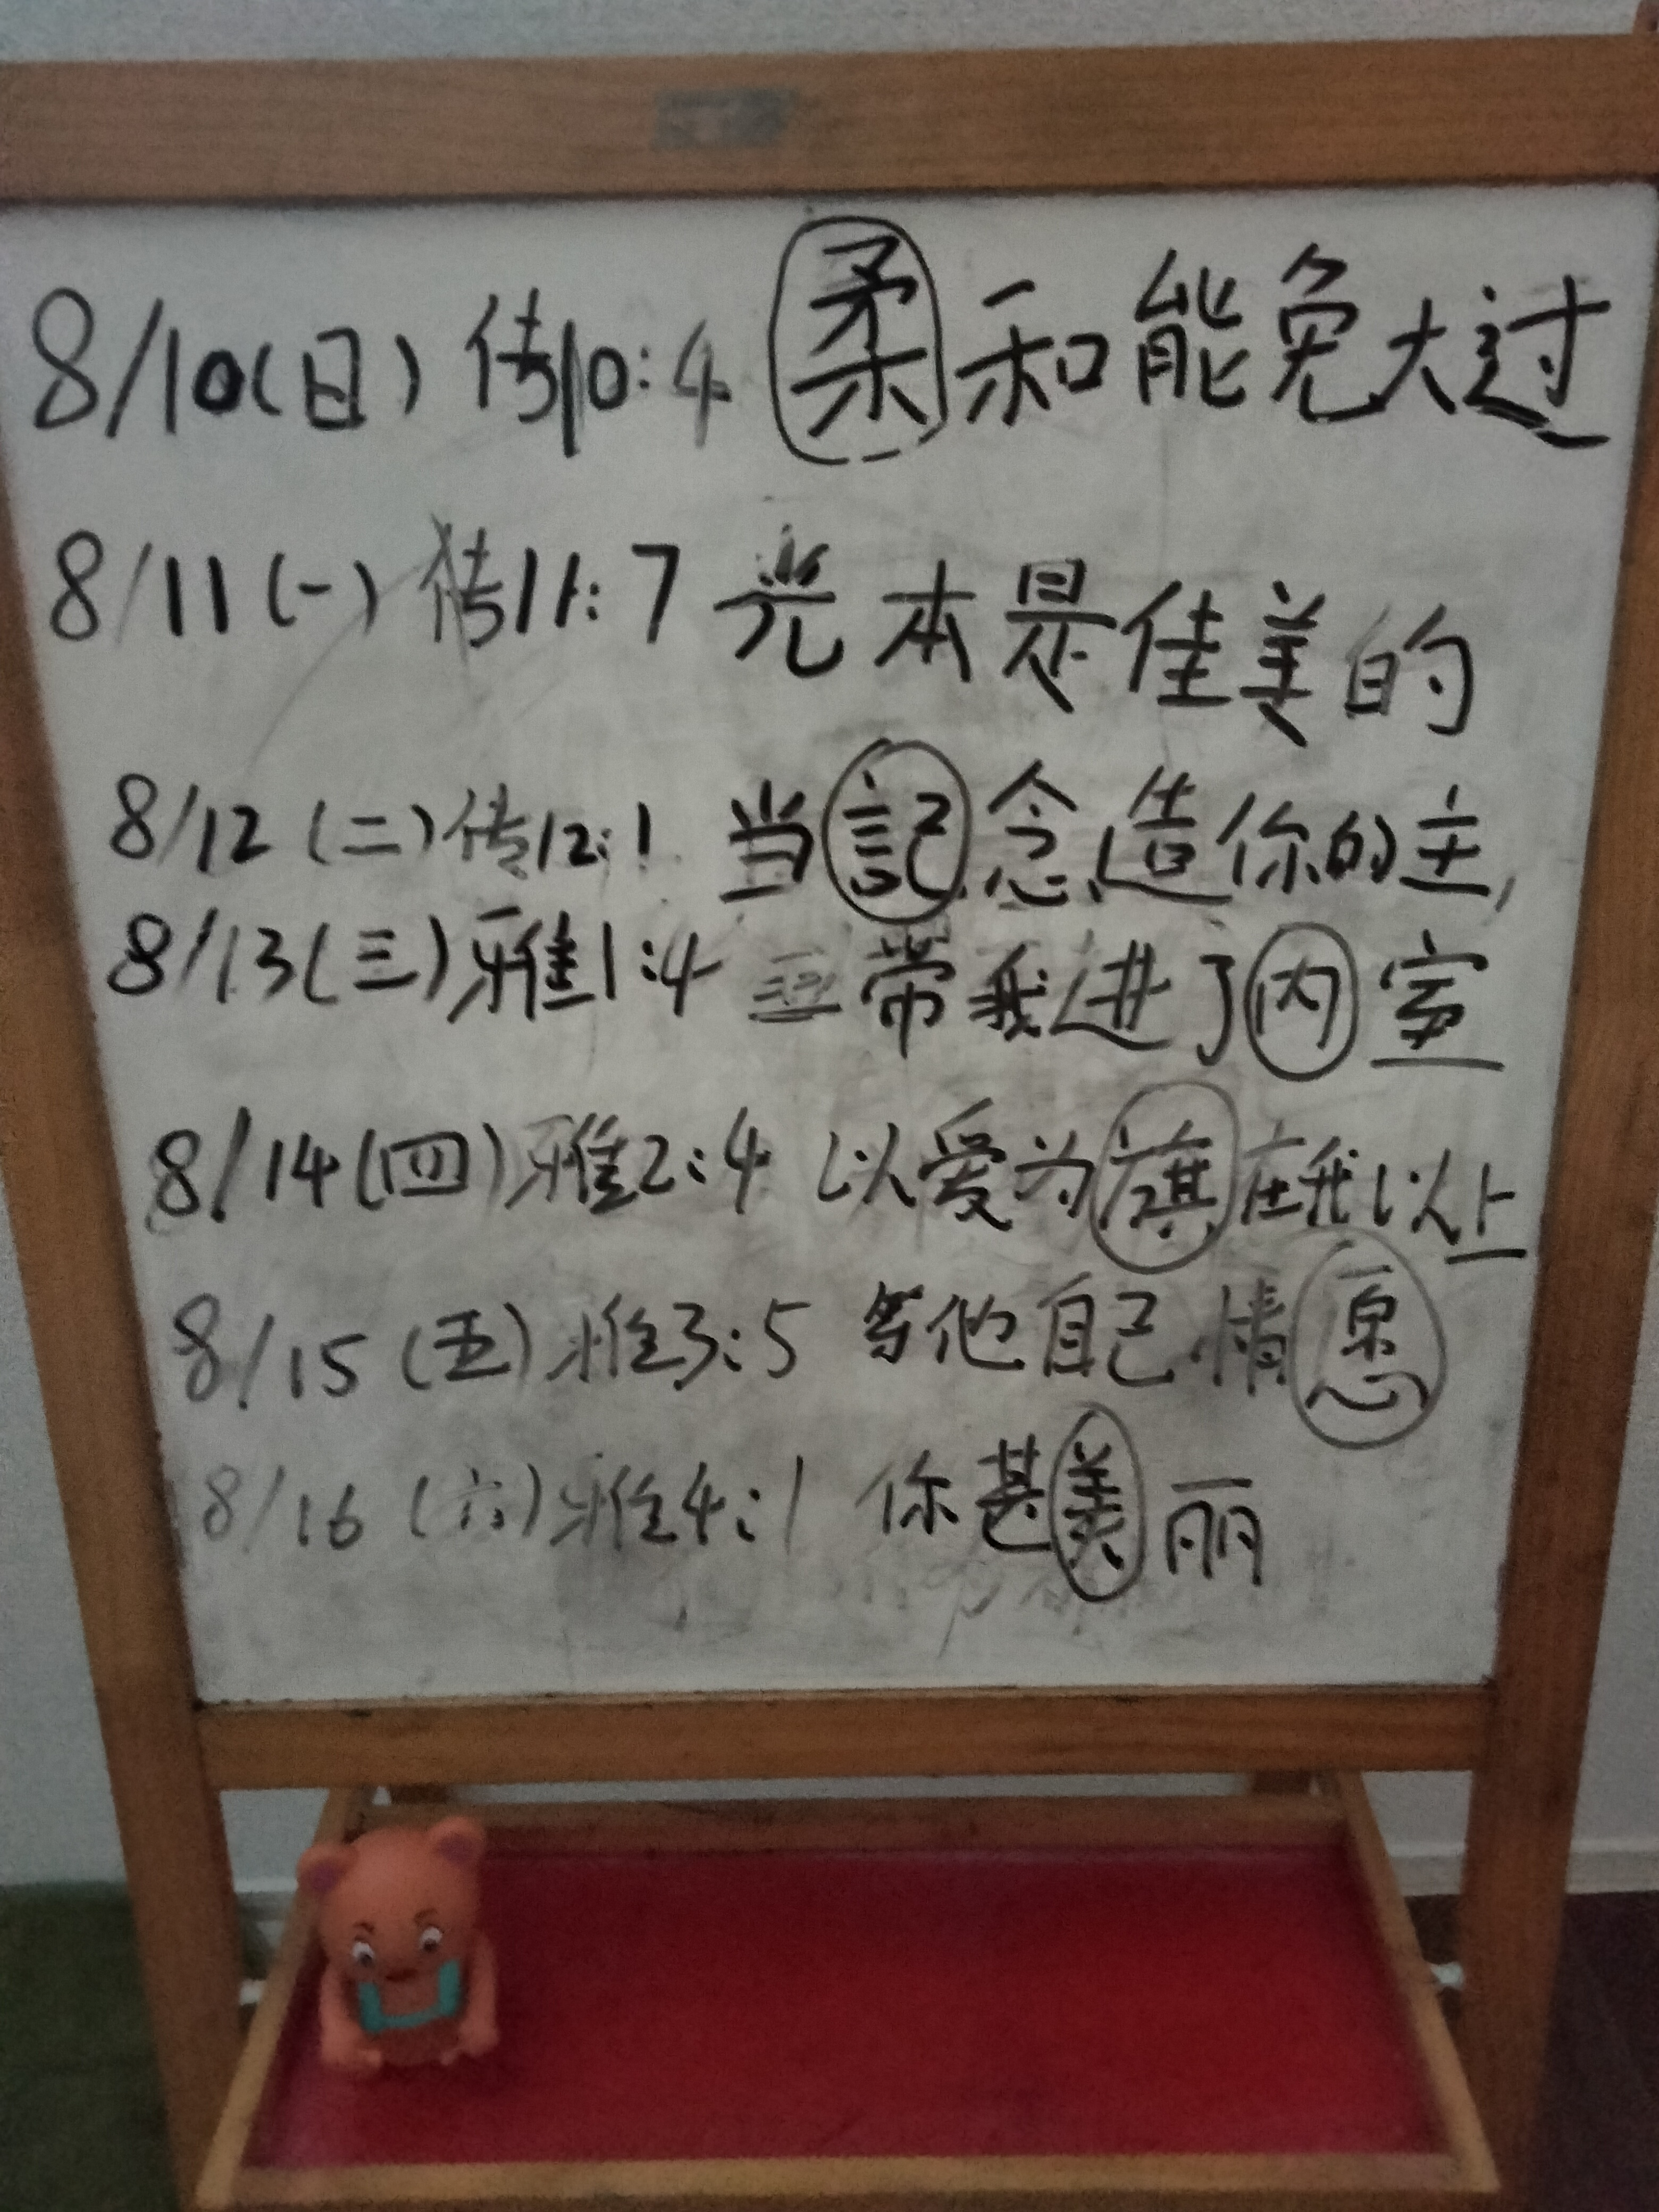 8/10(日) 传10:4 柔和能免大过
8/11(一) 传11:7 光本是佳美的
8/12(二) 传12:1 当記念造你的主,
8/13(三) 雅1:4 带我进了内室
8/14(四) 雅2:4 以爱为旗在我以上
8/15(五) 雅3:5 等他自己情愿
8/16(六) 雅4:1 你甚美丽